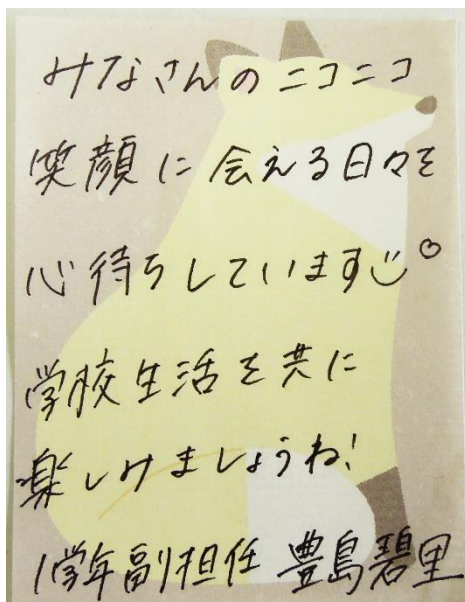 みなさんのニコニコ
笑顔に会える日々を
心待ちしています
学校生活を共に
楽しみましょうね!
1学年副担任 豊島碧里